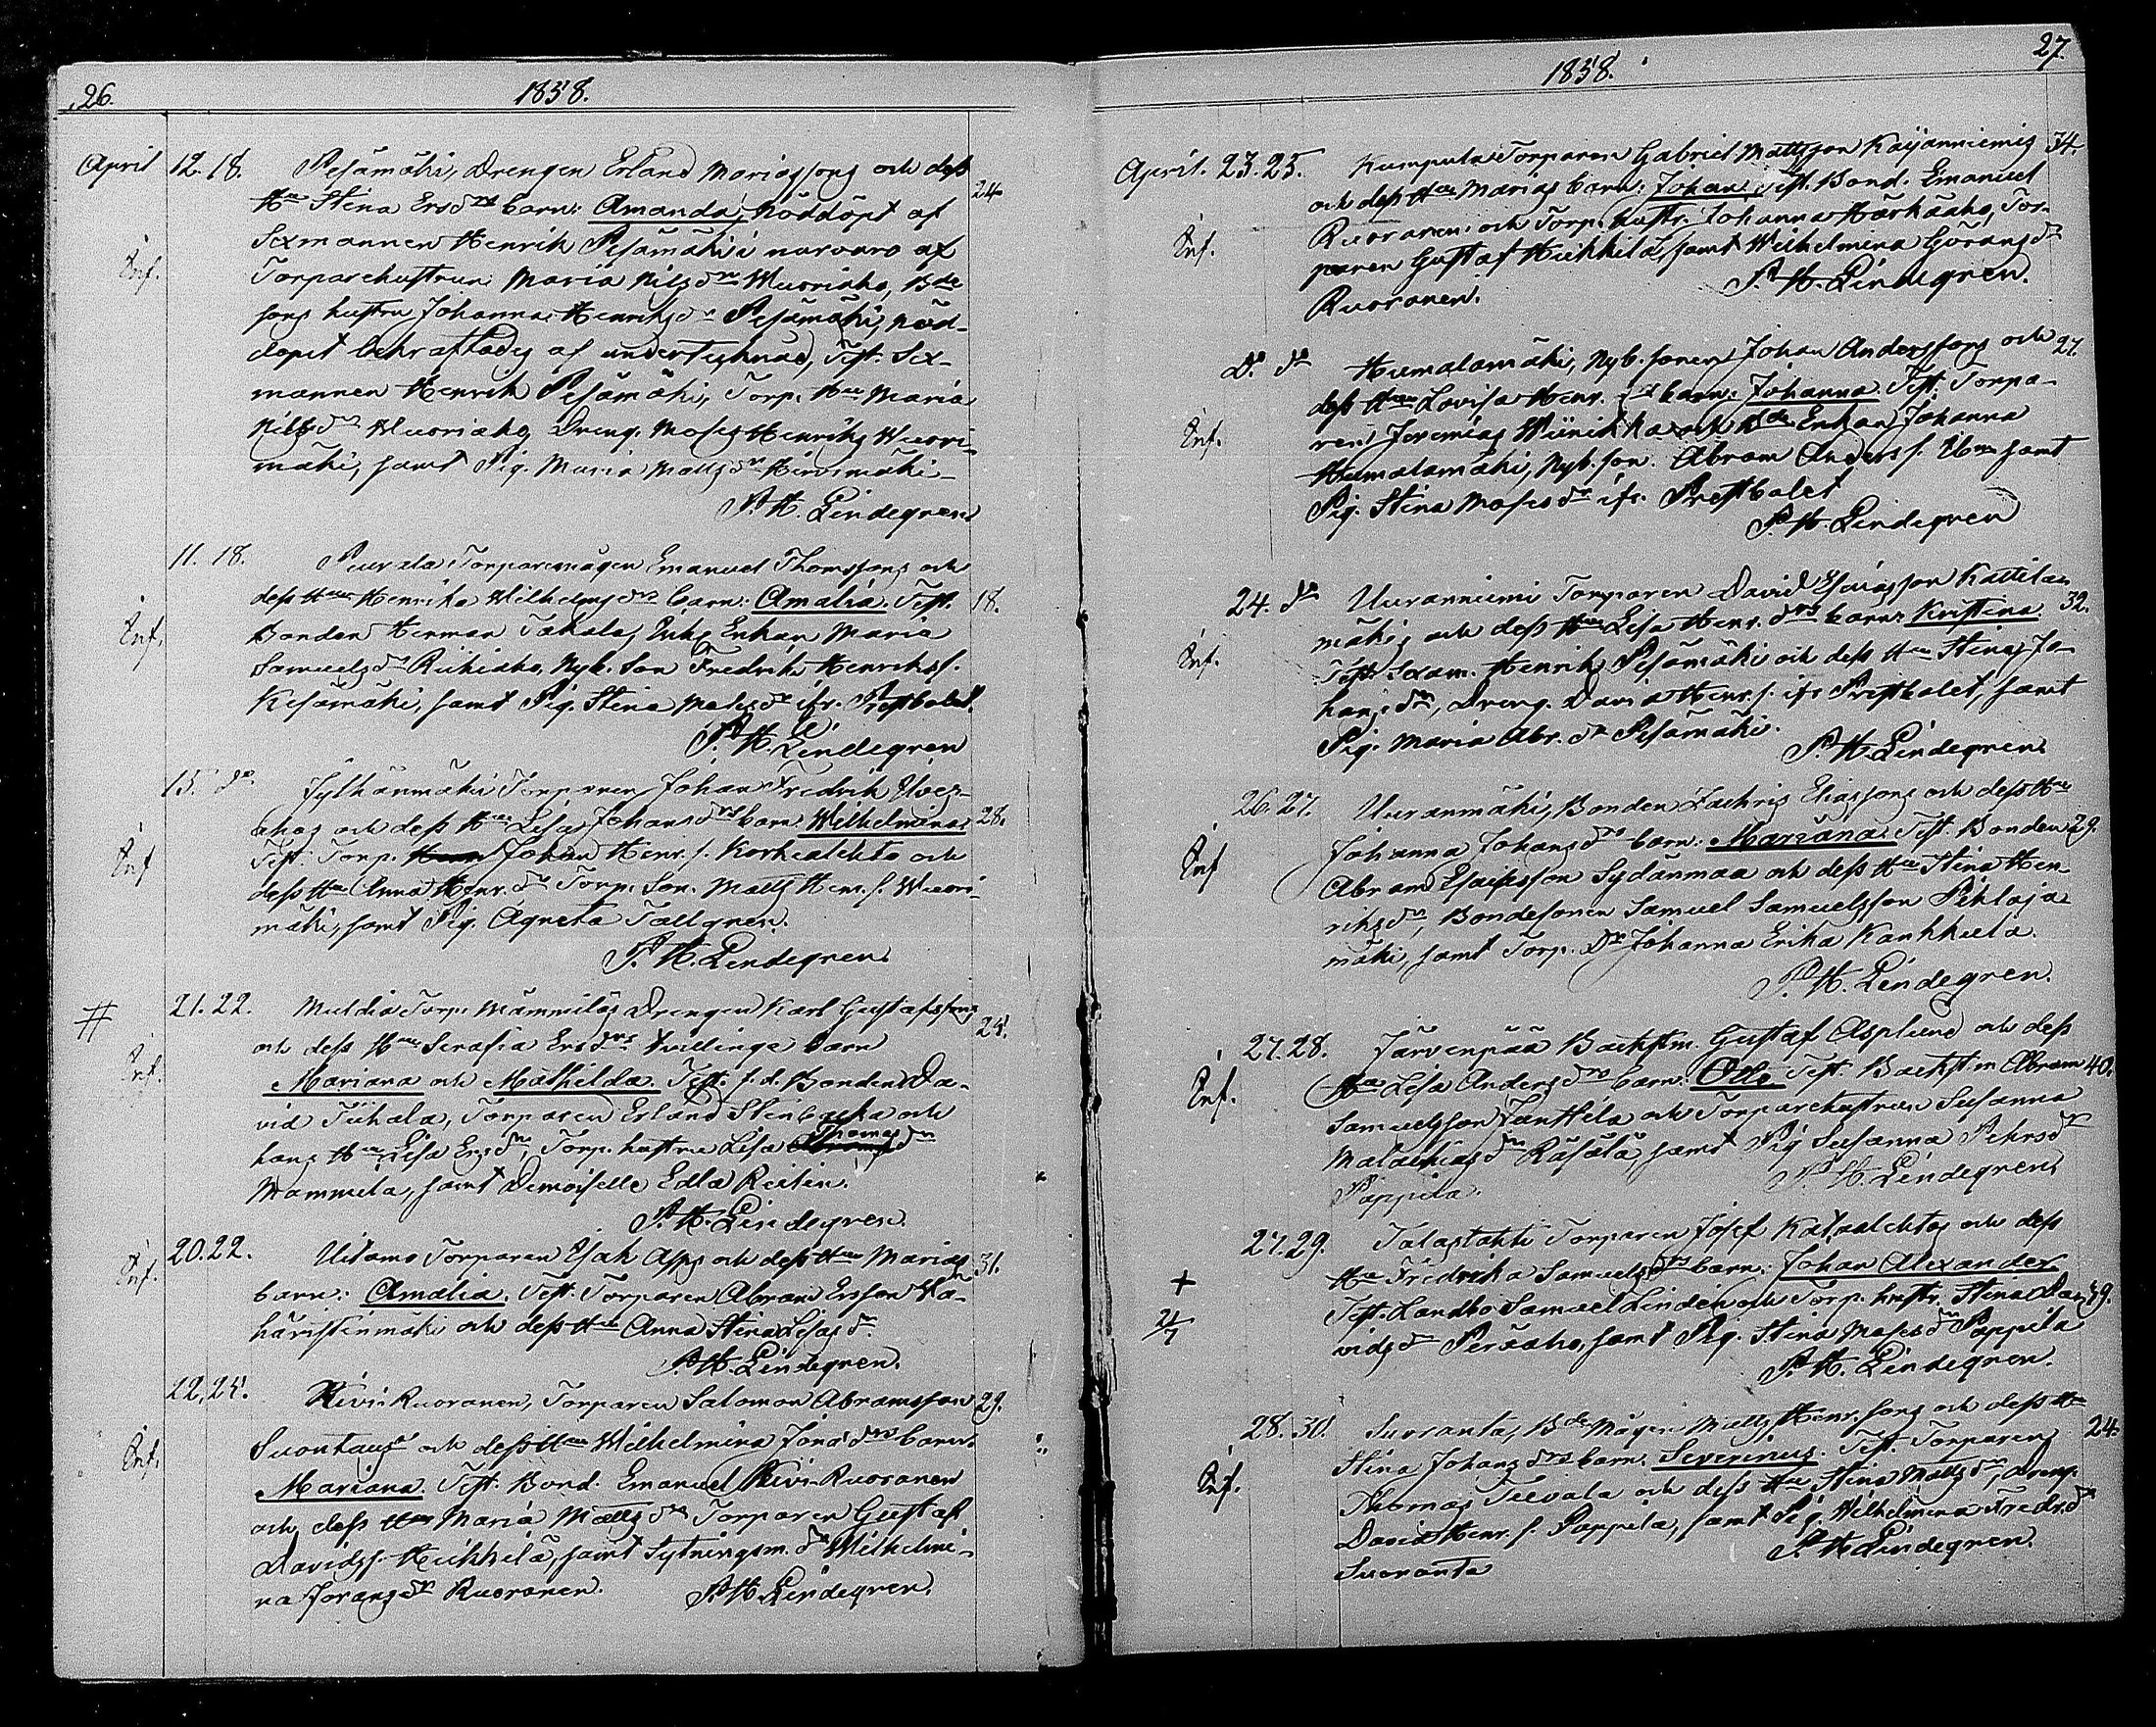 26. 1858.
April 12. 18. Pesämäki, Drengen Erland Mariæsons och dess
Hu Stina Ersdrs barn: Amanda, nöddöpt af 24
Inf. Sexmannen Henrik Pesämäki i narvaro af
Torparehustrun Maria Nilsdr Wuoriaho, Bde
sons hustru Johanna Henriksdr Pesämäki, nöd-
döpet bekräftades af undertecknad, Test. Sex-
mannen Henrik Pesämäki, Torp. Hu Maria
Nilsdr Wuoriaho, Dreng. Moses Henriks Wuori-
mäki, samt Pig. Maria Mattsdr Hirvimäki
P. H. Lindegren
11. 18. Puurala Torparemågen Emanuel Thomssons och
dess Hus Henrika Wilhelmsdrs barn: Amalia. Test. 18.
Inf. Bonden Herman Takala, Enkan Maria
Samuelsdr Riihiaho, Nyb. Son Fredrik Henrikss.
Kesämäki, samt Pig. Stina Mosesdr ifr. Prestbolet.
P. H. Lindegren
15. do Jylhänmäki Torparen Johan Fredrik
ahos och dess Hus Lisa Johansdrs barn Wilhelmina 28.
Inf Test. Torp. Johan Henr. s. Korkealehto och
dess Hu Anna Henr. dr Torp. Son. Matts Henr. s. Wuori-
mäki, samt Pig. Agneta Tallgren.
P. H. Lindegren
# 21. 22. Multia Torp. Mämmiläs Drengen Karl Gustafssons
och dess Hus Serafia Ersdrs tvillinge barn 25.
Inf. Mariana och Mathilda. Test. f.d. Bonden Da-
vid Tiihala, Torparen Erland Stenbacka och
hans Hu Lisa Ersdr, Torp. hustru Lisa Thomasdr
Mämmilä, samt Demoiselle Edla Reilin.
P. H. Lindegren
Inf. 20. 22. Uitamo Torparen Esak Asps och dess Hus Marias 31.
barn: Amalia. Test. Torparen Abram Ersson Wä-
häristinmäki och dess Hu Anna Stina Lisasdr
P. H. Lindegren.
22. 24. Kivi-Ruoranen, Torparen Salomon Abramsson 29.
Inf. Suontaus och dess Hus Wilhelmina Jonædrs barn
Mariana. Test. Bond. Emanuel Kivi-Ruoranen
och dess Hu Maria Mattsdr Torparen Gustaf
Davidss. Heikkilä, samt Sytningsm. dr Wilhelmi-
na Joransdr Ruoranen. P. H. Lindegren.
1858. 27.
April. 23. 25. Kumpula Torparen Gabriel Mattsson Kaijanniemis 34.
och dess Hus Marias barn: Johan, Test. Bond. Emanuel
Inf. Ruoranen och Torp. hustr. Johanna Härkäaho, Tor-
paren Gustaf Heikkilä, samt Wilhelmina Göransdr
Ruoranen. P. H. Lindegren.
Do. do Humalamäki, Nyb. sonen Johan Anderssons och 27.
dess Hus Lovisa Henr. drs barn: Johanna. Test. Torpa-
Inf. ren Jeremias Wiinikka och Bde Enkan Johanna
Humalamäki, Nyb. son. Abram Anderss. samt
Pig. Stina Mosesdr ifr. Prestbolet
P. H. Lindegren
24. do Uuranniemi Torparen David Esaiasson Kattilan
mäkis och dess Hus Lisa Henr. drs barn: Kristina. 32.
Inf. Test. Sexm. Henrik Pesämäki och dess Hu Stina Jo-
hansdr, Dreng. David Henr. s. ifr Prestbolet, samt
Pig. Maria Abr. dr Pesämäki.
P. H. Lindegren
26. 27. Uuranmäki, Bonden Zachris Eliassons och dess Hus
Johanna Johansdrs barn: Mariana. Test. Bonden 29.
Inf Abram Esaiasson Sydänmaa och dess Hu Stina Hen-
riksdr, Bondesonen Samuel Samuelsson Pihlaja-
mäki, samt Torp. Dr Johanna Erika Kankkula.
P. H. Lindegren.
27. 28. Järvenpää Backstm. Gustaf Asplund och dess
Inf. Hus Lisa Andersdrs barn: Otto Test Backstm Abram 40.
Samuelsson Janttila och Torparehustrun Susanna
Malachiasdr Räsälä, samt Pig Susanna Pehrsdr
Pappila. P. H. Lindegren
27. 29. Talastahti Torparen Josef Kataalehtos och dess
+ Hu Fredrika Samuelsdrs barn: Johan Alexander
21/7 Test. Landbo Samuel Linden och Torp. hustr. Stina Da- 39.
vidsdr Peräaho, samt Pig. Stina Mosesdr Pappila
P. H. Lindegren.
28. 30. Suoranta, Bde Mågen Matts Henr. sons och dess Hu 24.
Stina Johansdrs barn: Severinus. Test. Torparen
Inf. Thomas Teevala och dess Hu Stina Mattsdr, Dreng.
David Henr. s. Pappila, samt Pig. Wilhelmina Fredr. dr
Suoranta P. H. Lindegren.